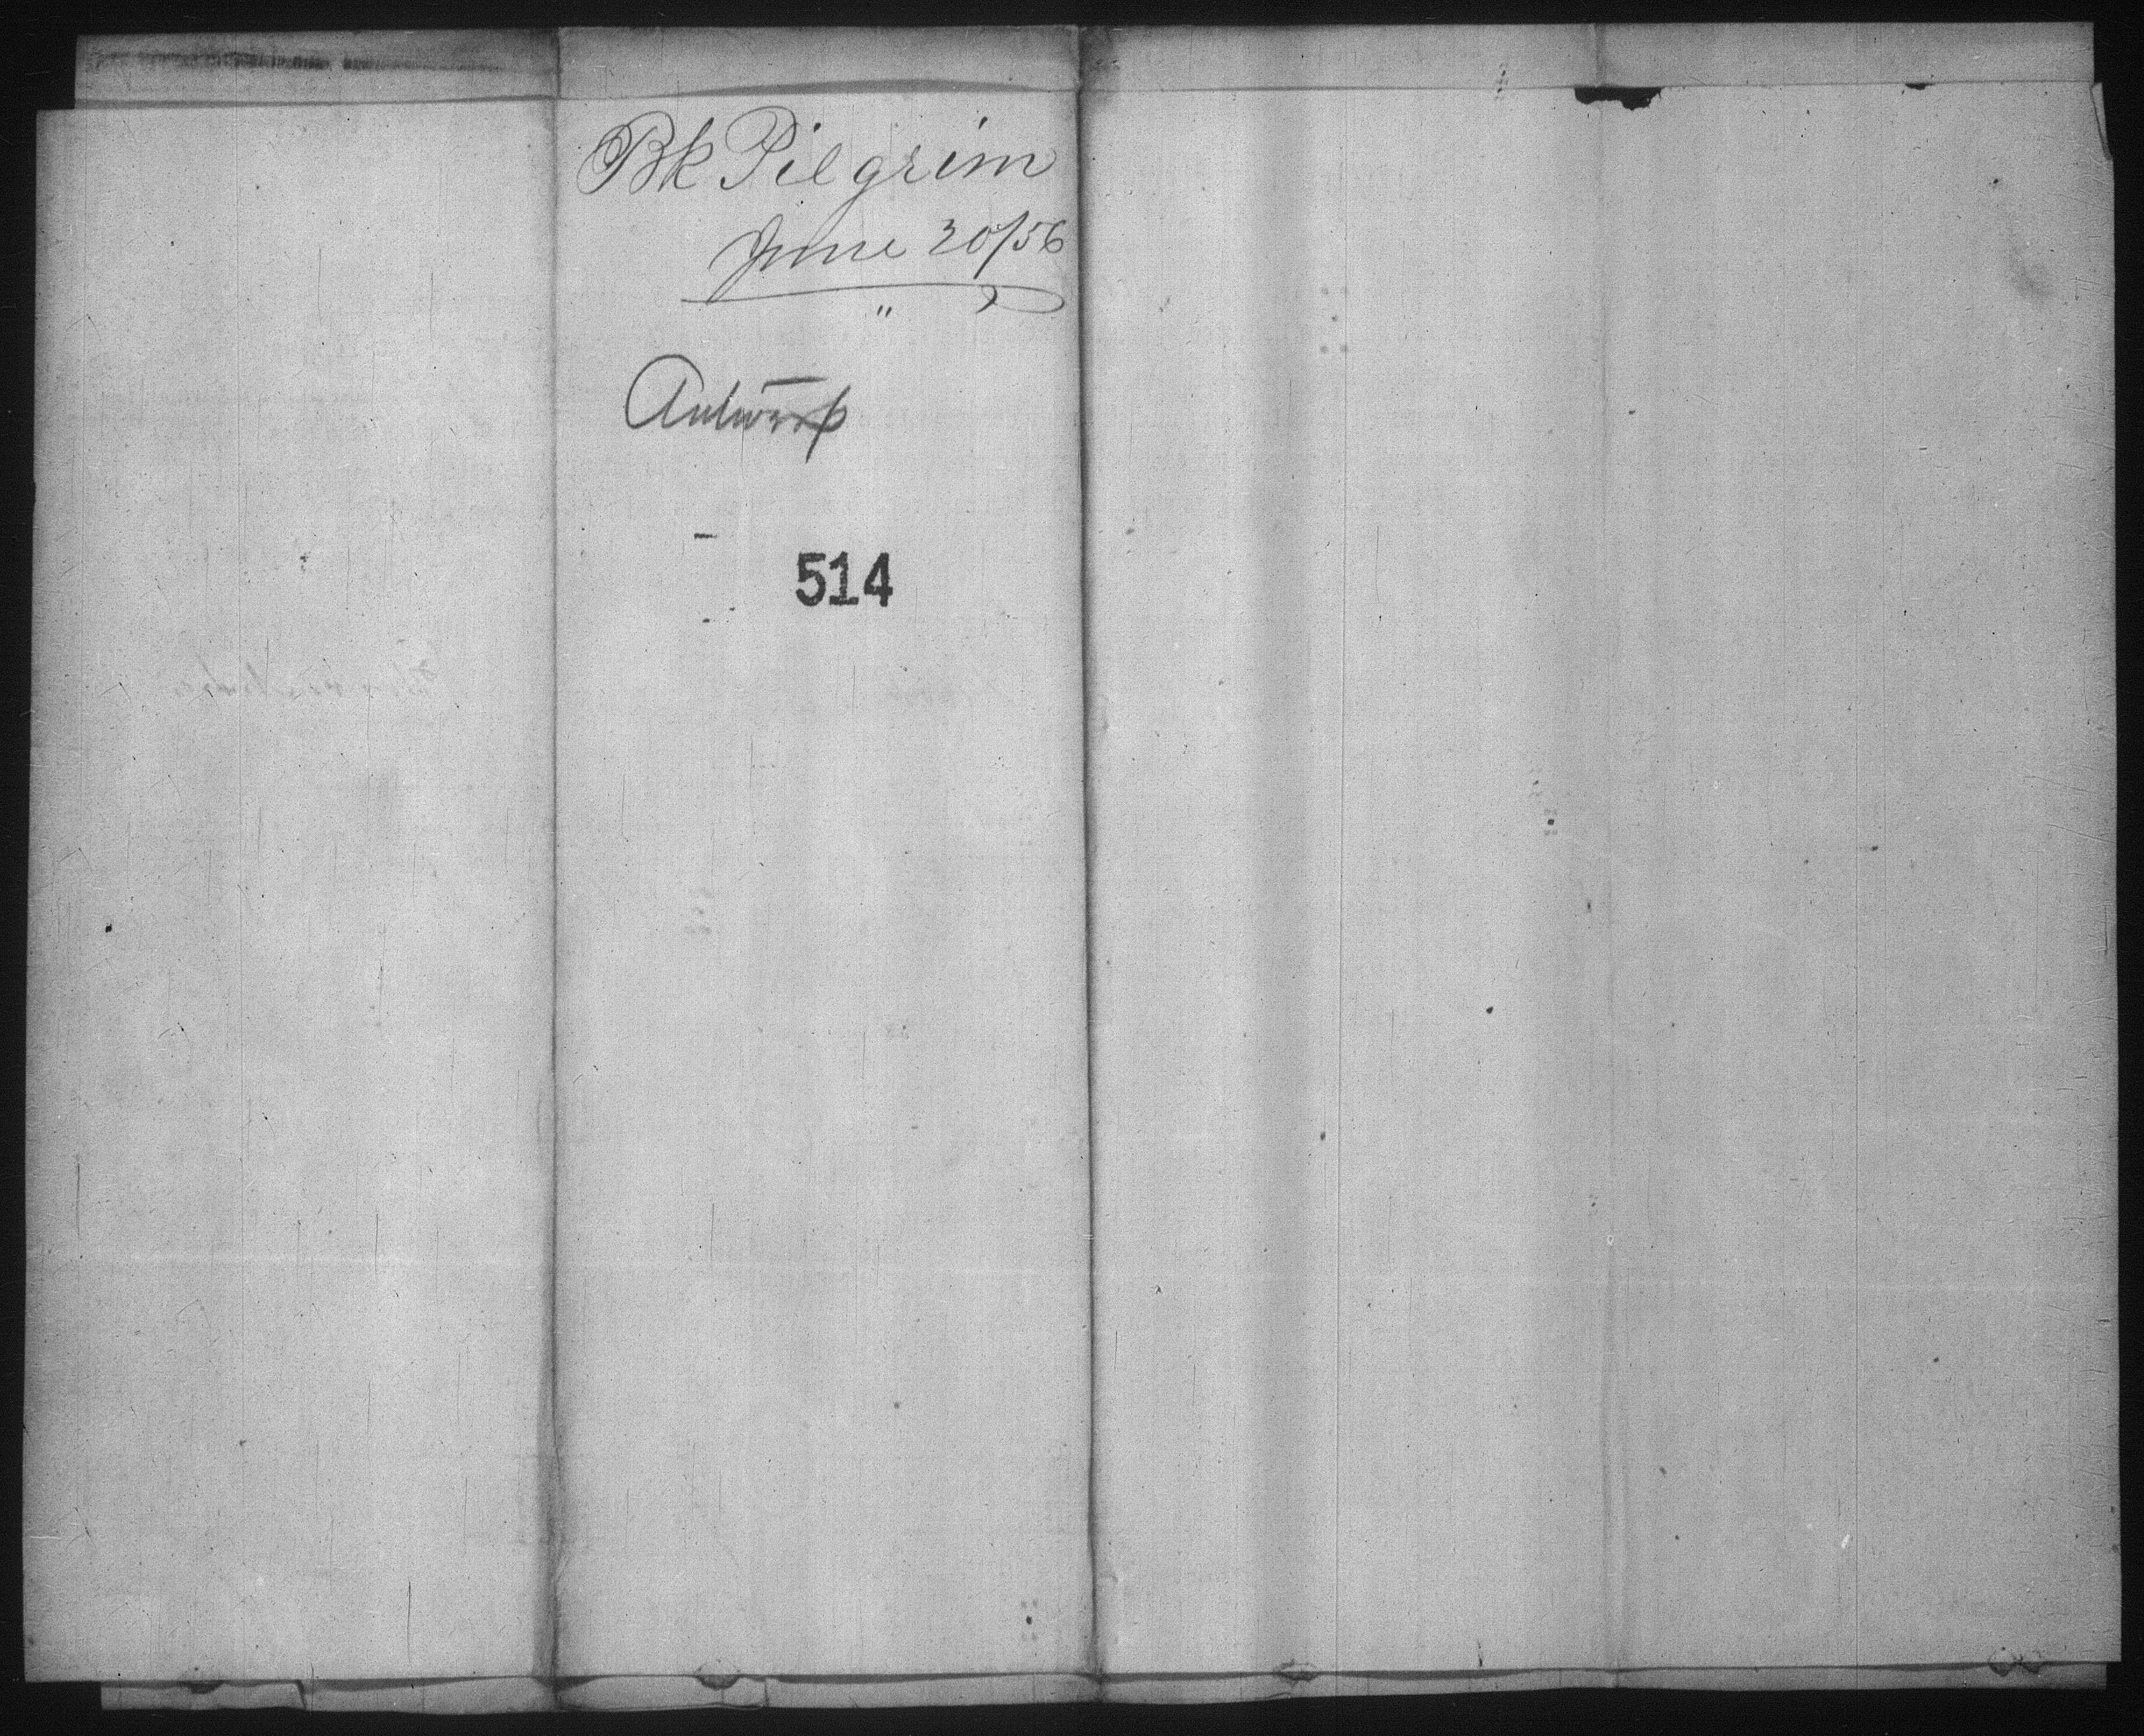 Bk Pilgrim
June 20/56
"
Antwerp
514